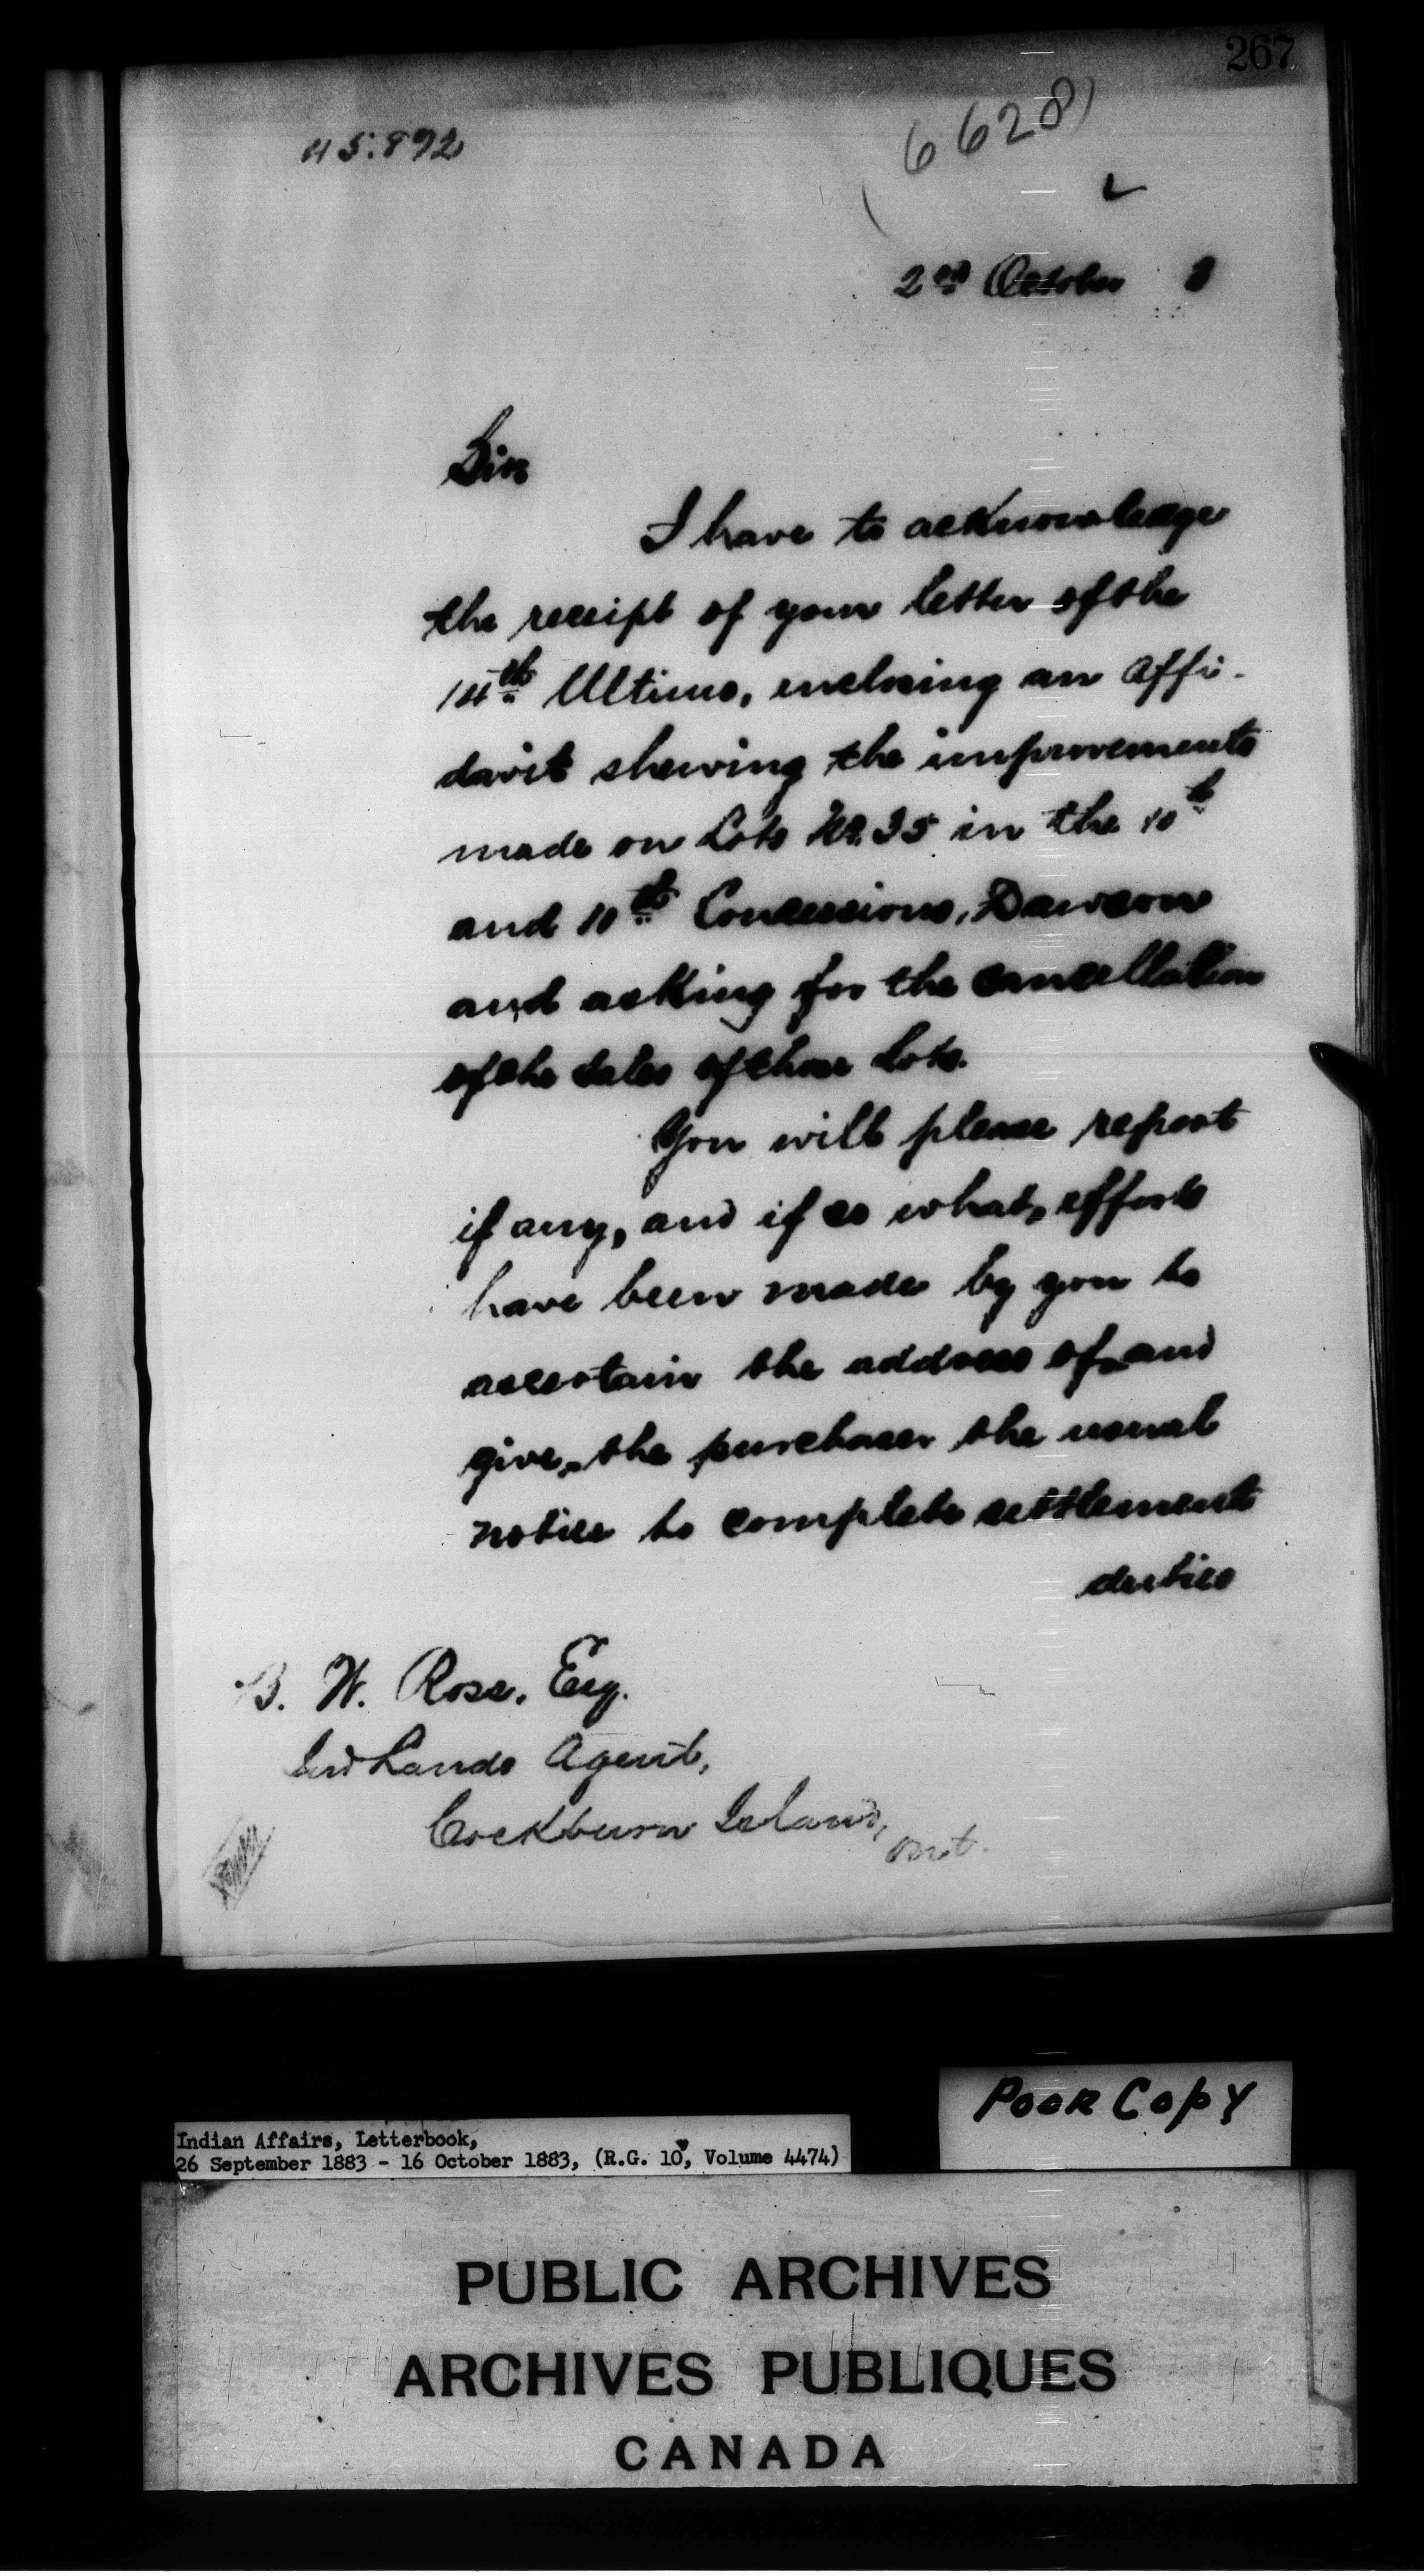 267
45.892
(6628)
2nd October 3
Sir
I have to acknowledge
the receipt of your letter of the
14th Ultimo, enclosing an Affi-
davit shewing the improvements
made on Lots No. 35 in the 10th
and 11th Concessions, Dawson
and asking for the cancellation
of the sales of those Lots.
You will please report
if any, and if so what, efforts
have been made by you to
ascertain the address of, and
give, the purchaser the usual
notice to complete settlement
duties
B. W. Ross, Esq.
Ind Lands Agent,
Cockburn Island,
Ont.
Poor Copy
Indian Affairs, Letterbook,
26 September 1883 - 16 October 1883, (R.G. 10, Volume 4474)
PUBLIC ARCHIVES
ARCHIVES PUBLIQUES
CANADA